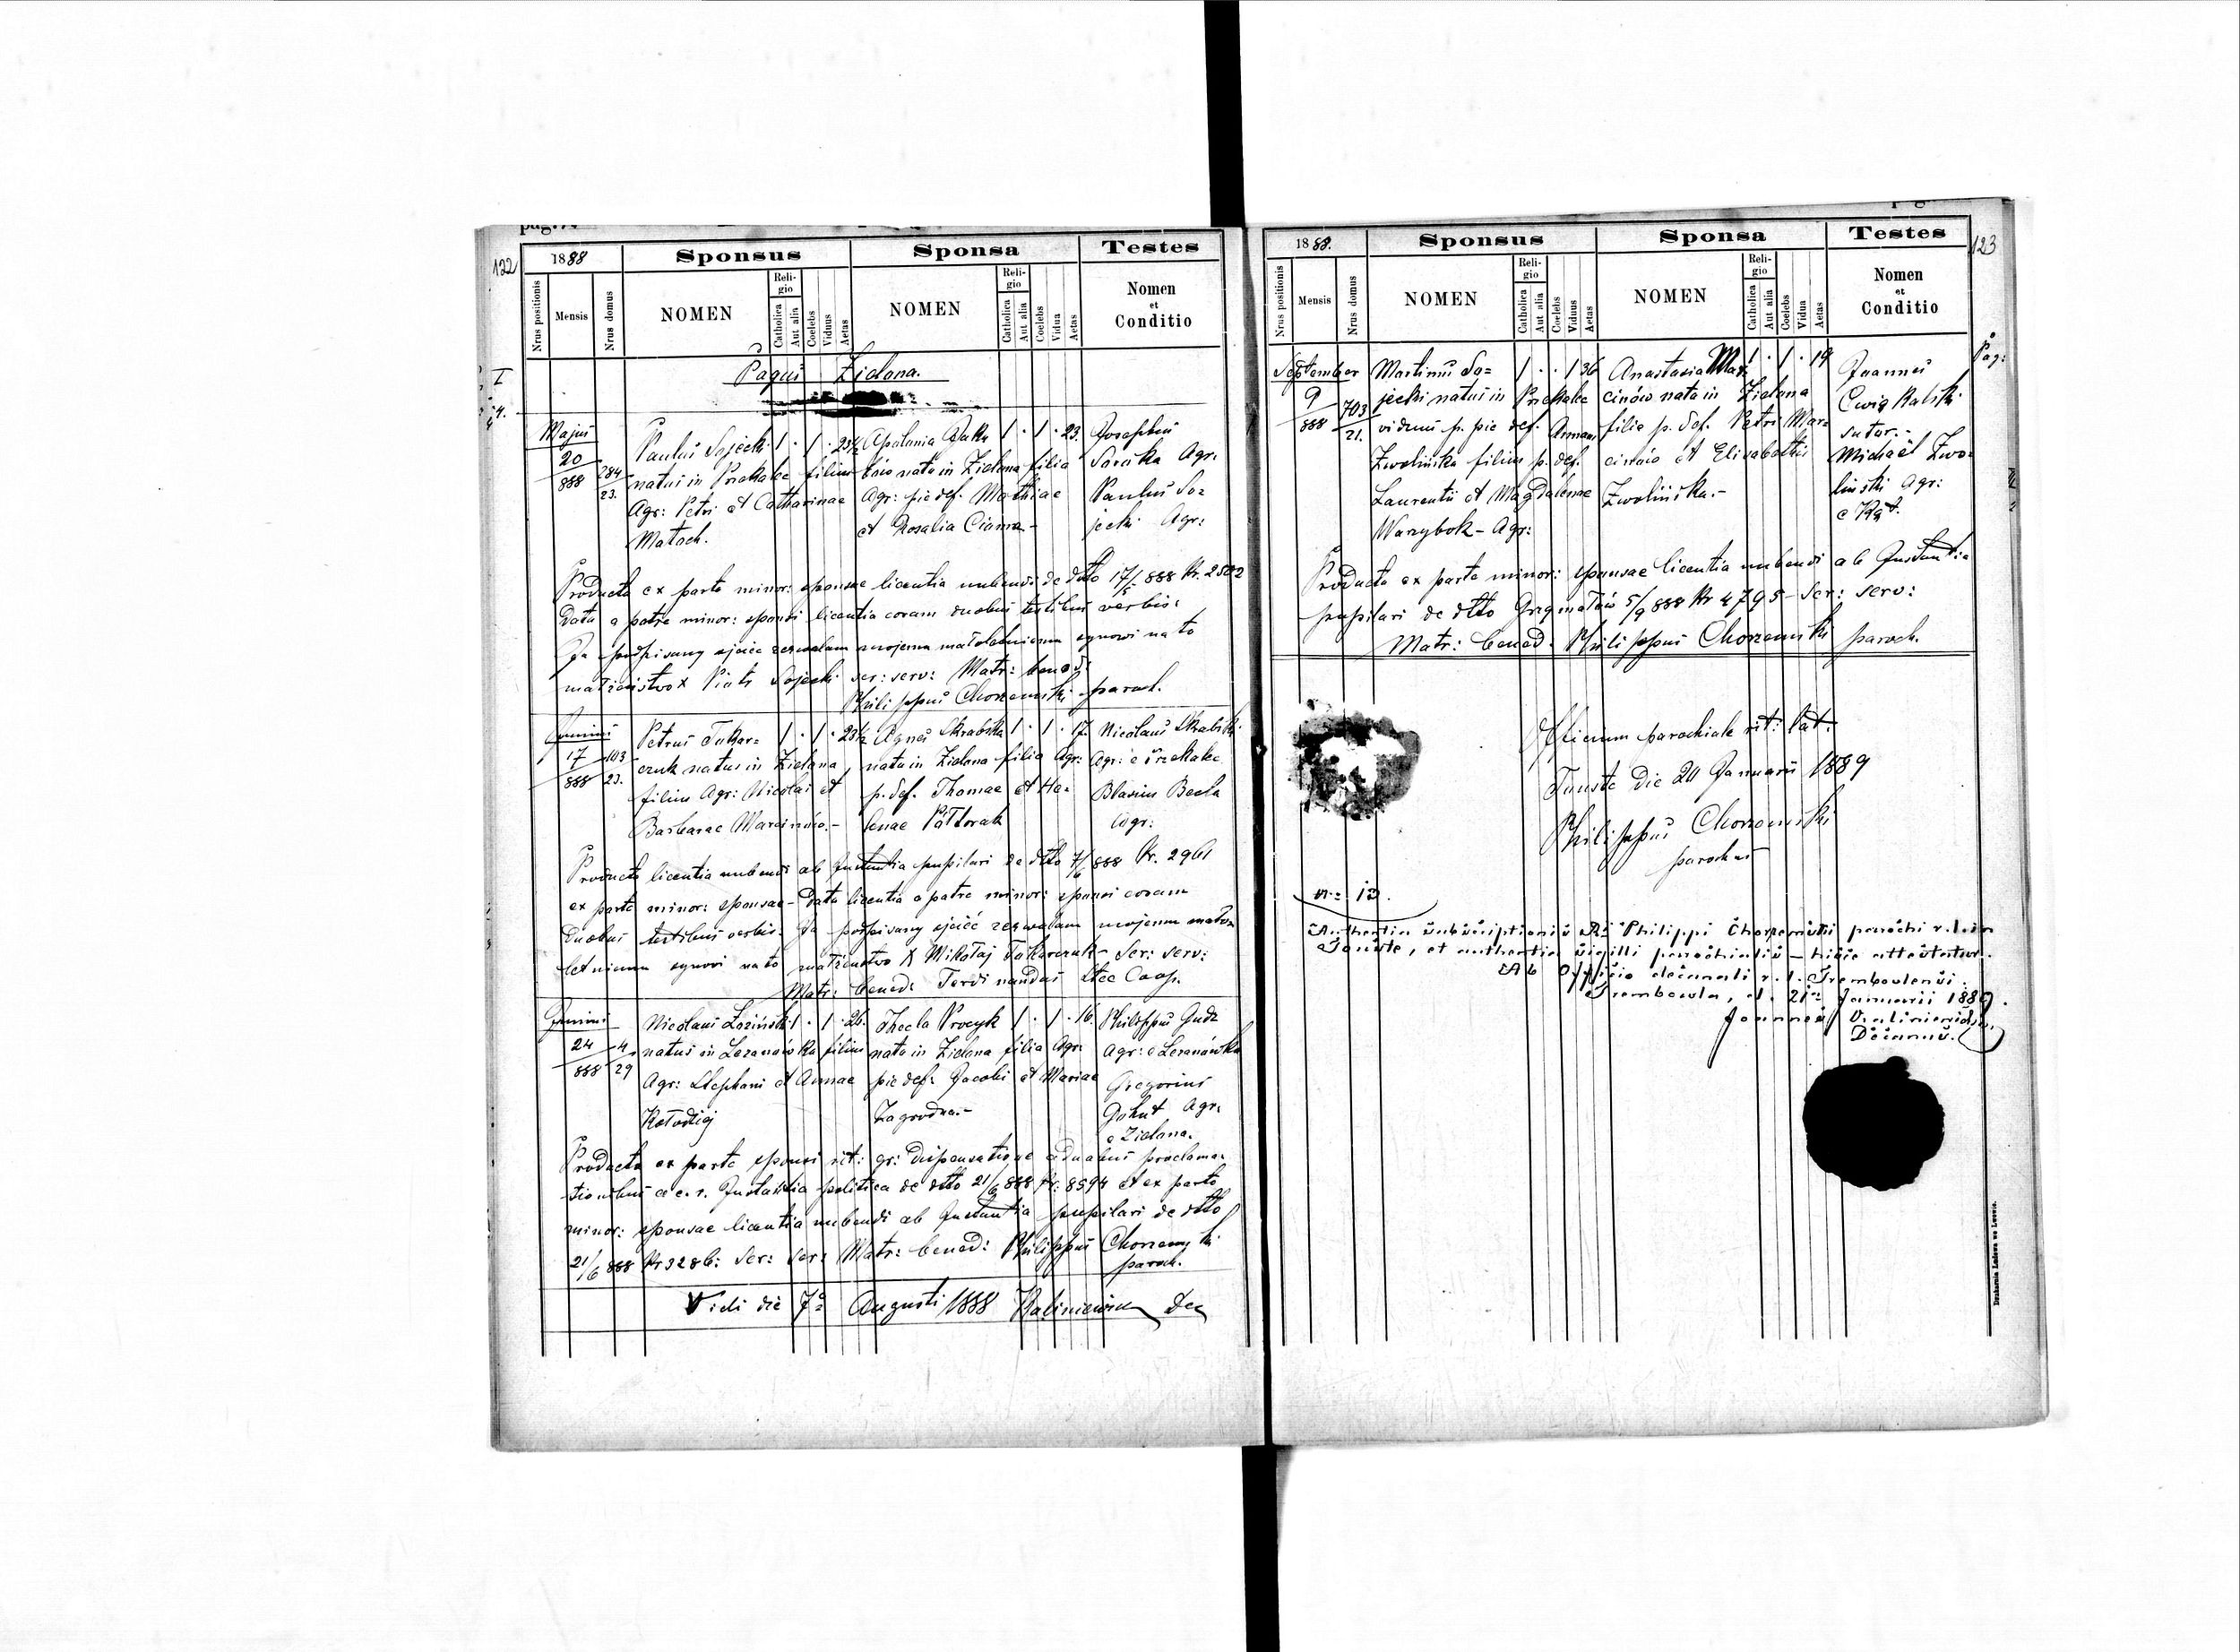 122
1888
Sponsus
Sponsa
Testes
Nrus positionis
Mensis
Nrus domus
NOMEN
Religio
Catholica
Aut alia
Coelebs
Viduus
Aetas
NOMEN
Religio
Catholica
Aut alia
Coelebs
Vidua
Aetas
Nomen
et
Conditio
Pagus Zielona.
Majus
20/888
284
23.
Paulus Sojecki 1 · 1 · 23½
natus in Prekalec filius
Agr: Petri et Catharinae
Matach.
Apolonia
nata in Zielona filia
Agr: pie def. Mathiae
et Rosalia Ciama-
1 · 1 · 23.
Josephus
Soroka Agr:
Paulus So=
jecki Agr:
Producta ex parte minor: sponsae licentia nubendi de dtto 17/5 888 Nr. 2502
Data a patre minor: sponsi licentia coram duobus testibus verbis:
Ja podpisany ojciec zezwalam mojemu małoletniemu synowi na to
małżeństwo X Piotr Sojecki ser: serv: Matr: bened:
Philippus Chorzemski paroch.
Junius
17/888
103
23.
Petrus Tokar=
czuk natus in Zielona,
filius Agr: Nicolai et
Barbarae Marcinów.-
1 · 1 · 23½
Agnes Skrabska 1 · 1 · 17.
nata in Zielona filia Agr:
p. def. Thomae et He=
lenae Półtorak
Nicolaus Skrabski
Agr: e Przekalec
Blasius Becla
Agr:
Producta licentia nubendi ab Instantia pupilari de dtto 7/6 888 Nr. 2961
ex parte minor: sponsae - Data licentia a patre minor: sponsi coram
duobus testibus verbis. Ja podpisany ojciec zezwalam mojemu mało=
letniemu synowi na to małżeństwo X Mikołaj Tokarczuk - Ser: serv:
Matr: bened: Ferdinandus Coop.
Junius
24/888
4
29
Nicolaus Łoziński 1 · 1 · 26.
natus in Lezanówka filius
Agr: Stephani et Annae
Kołodzij
Thecla Procyk 1 · 1 · 16.
nata in Zielona filia Agr:
pie def: Jacobi et Mariae
Zagrodna.-
Philippus Gudz
Agr: e Lezanówka
Gregorius
Agr:
e Zielona.
Producta ex parte sponsi rit: gr: dispensatione a duabus proclama=
tionibus a c. r. Instantia politica de dtto 21/6 888 Nr: 8594 et ex parte
minor: sponsae licentia nubendi ab Instantia pupilari de dtto
21/6 888 Nr 3286: Ser: ser: Matr: bened: Philippus Chorzemski
paroch.
Vidi die 7a Augusti 1888 Kaliniewicz Dec
123
1888.
Sponsus
Sponsa
Testes
Nrus positionis
Mensis
Nrus domus
NOMEN
Religio
Catholica
Aut alia
Coelebs
Viduus
Aetas
NOMEN
Religio
Catholica
Aut alia
Coelebs
Vidua
Aetas
Nomen
et
Conditio
Pag:
September
9/888
703
21.
Martinus So=
jecki natus in Prekalec
viduus p. pie def. Annam
Zwolińska filius p. def.
Laurentii et Magdalenae
Warzybok - Agr:
1 · · 1 36
Anastasia Mar=
cinów nata in Zielona
filia p. def. Petri Mar=
cinów et Elisabethis
Zwolińska.-
1 · 1 · 19
Joannes
Ćwiąkalski
sutor.-
Michael Zwo=
liński Agr:
Producta ex parte minor: sponsae licentia nubendi ab Instantia
pupilari de dtto Grzymałów 5/9 888 Nr 4795 - Ser: serv:
Matr: bened. Philippus Chorzemski paroch.
Officium parochiale rit: lat:
Touste die 20 Januarii 1889
Philippus Chorzemski
parochus
Nr: 13.
Authentia subscriptionis Rdi Philippi Chorzemski parochi r. l. in
Touste, et authentia sigilli parochialis - hisce attestatur.
Ab Officio decanali r. l. Trembovlensi.
Trembowla, d. 21a Januarii 1889.
Joannes Kaliniewicz
Decanus.
Drukarnia Ludowa we Lwowie.